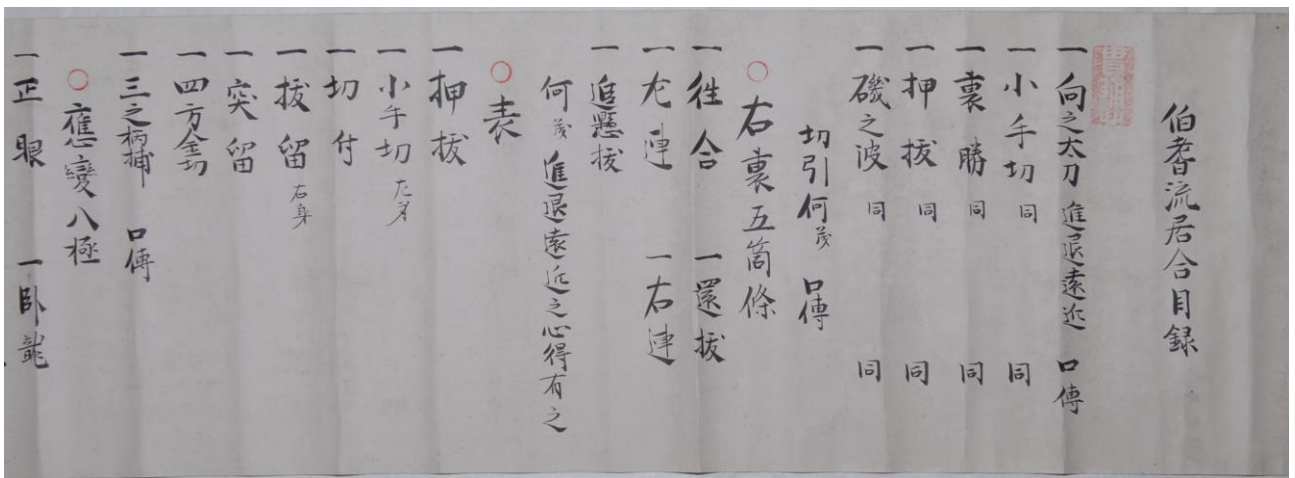 伯耆流居合目録
一向之太刀 進退遠近 口傳
一小手切 同 同
一裏勝 同 同
一押拔 同 同
一磯之波 同 同
切引何茂 口傳
○右裏五箇條
一徃合 一還拔
一左連 一右連
一追懸拔
何茂進退遠近之心得有之
○表
一押拔
一小手切 左身
一切付
一拔留 右身
一突留
一四方金切
一三之柄捕 口傳
○應變八極
一正眼 一臥龍